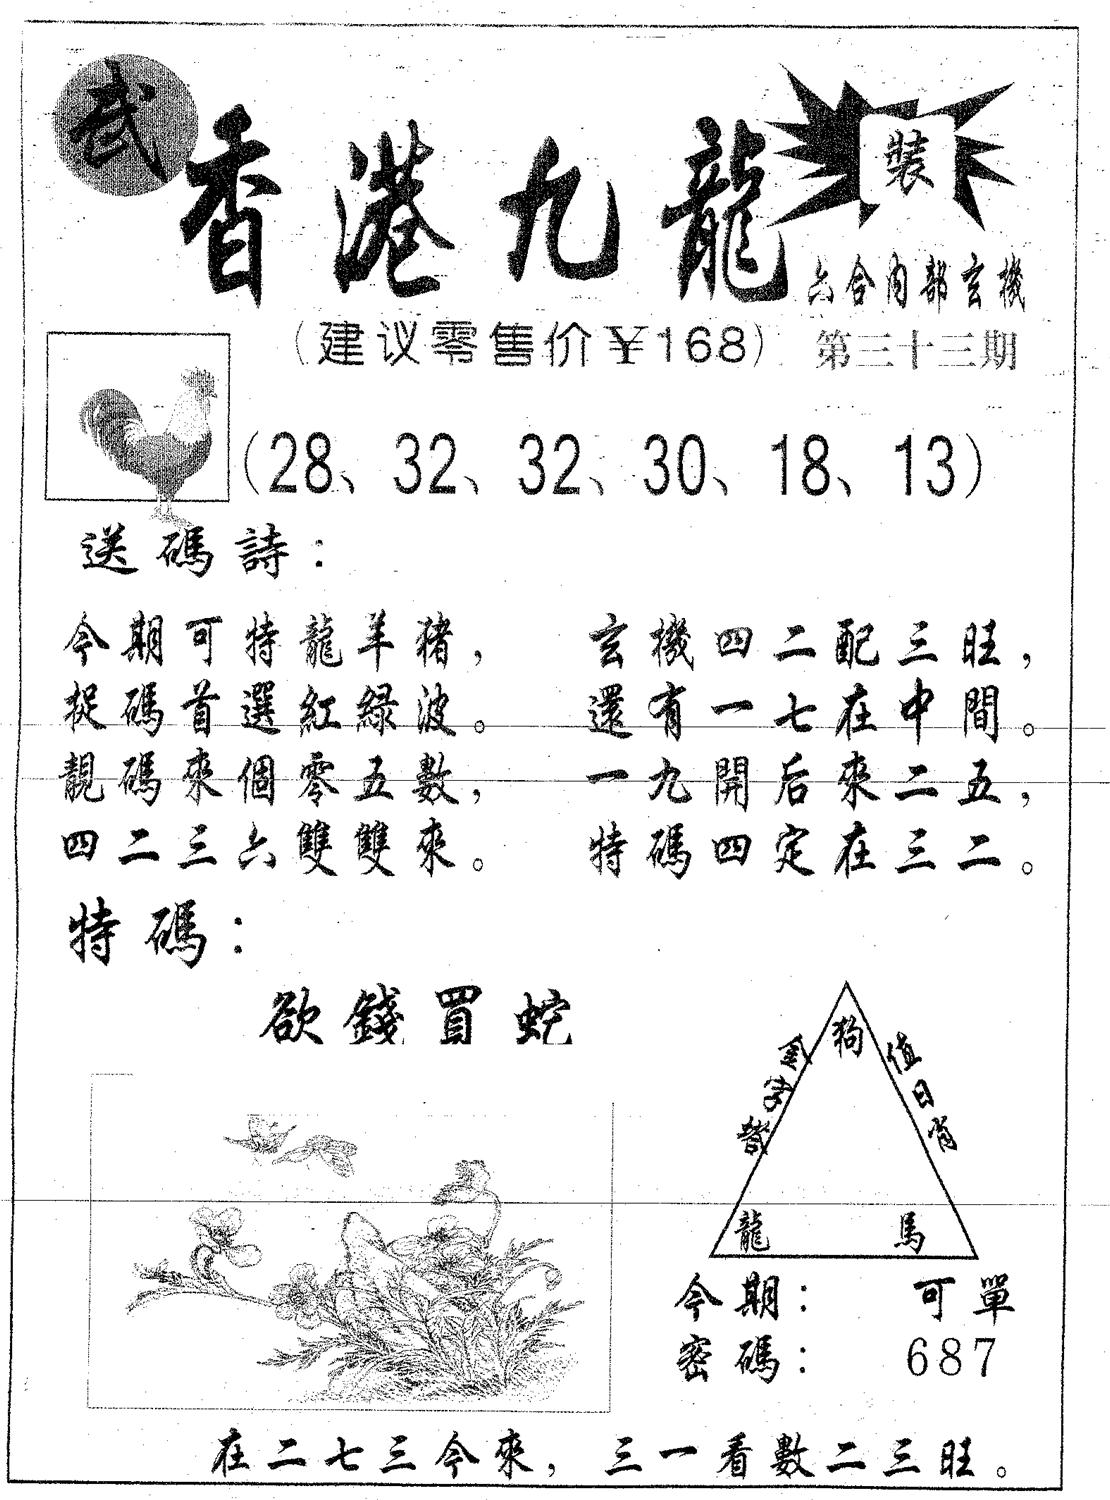 武
香港九龍
裝
六合內部玄機
（建议零售价￥168）
第三十三期
（28、32、32、30、18、13）
送碼詩：
今期可特龍羊豬，
捉碼首選紅綠波。
靚碼來個零五數，
四二三六雙雙來。
玄機四二配三旺，
還有一七在中間。
一九開后來二五，
特碼四定在三二。
特碼：
欲錢買蛇
金字塔
狗
值日肖
龍 馬
今期： 可單
密碼： 687
在二七三今來，三一看數二三旺。